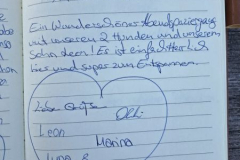 Ein Wunderschöner Abendspaziergang
mit unseren 2 Hunden und unserem
Sohn Leon! Es ist einfach herrlich
hier und super zum Entspannen.
Liebe Grüße
Olli
Leon
Marina
Luna &